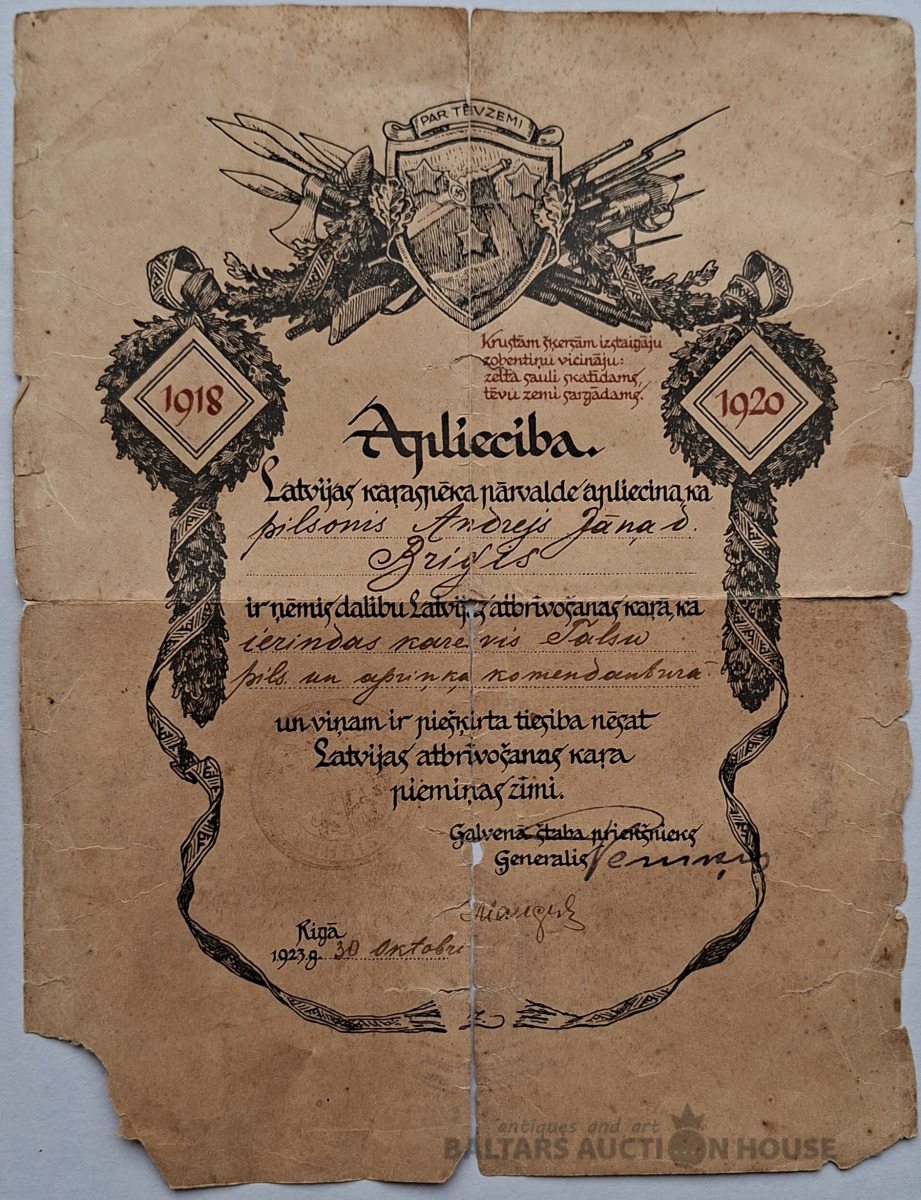 PAR TĒVZEMI
Krustām šķersām izstaigāju
zobentiņu vicināju:
zelta sauli skatīdams,
tēvu zemi sargādams.
1918
1920
Apliecība.
Latvijas kaŗaspēka pārvalde apliecina, ka
pilsonis Andrejs Jāņa d.
Briģis
ir ņēmis dalību Latvij. atbrīvošanas kaŗā, kā
ierindas kareivis Talsu
pils. un apriņķa komendantūrā
un viņam ir piešķirta tiesība nēsāt
Latvijas atbrīvošanas kaŗa
piemiņas zīmi.
Galvenā štaba priekšnieks
Ģenerālis
Rīgā
1923.g. 30 Oktobrī
antiques and art
BALTARS AUCTION HOUSE